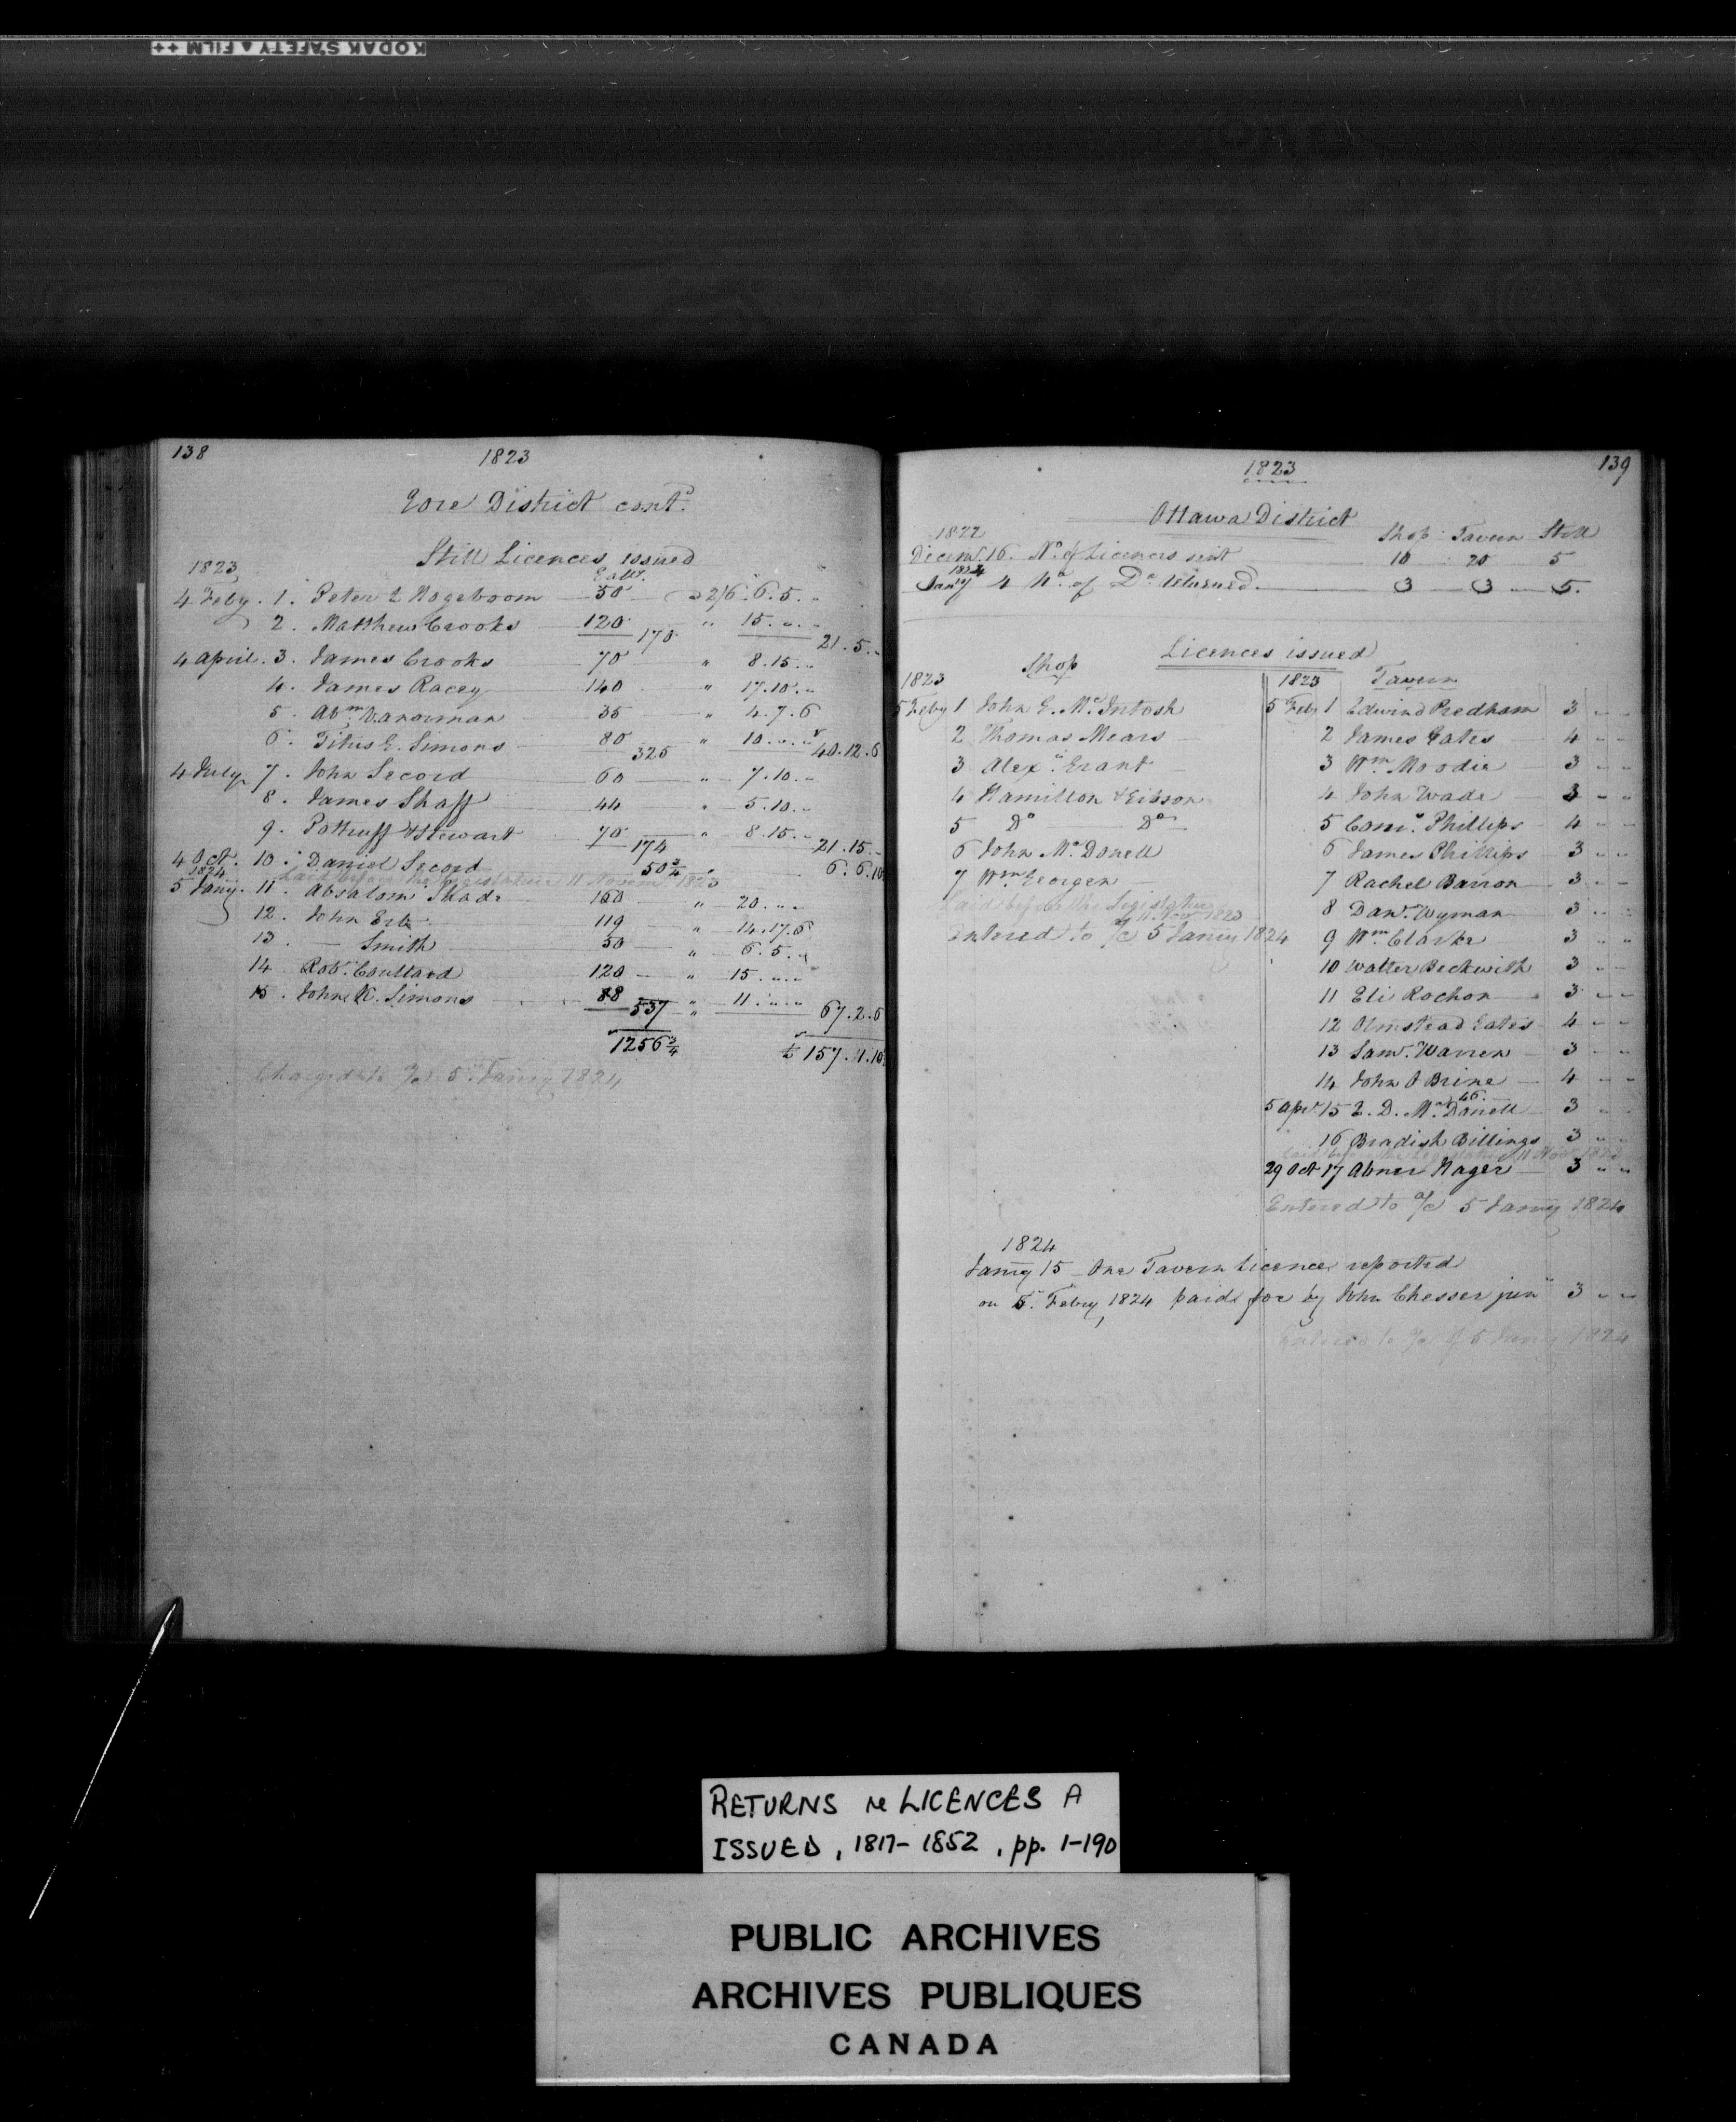 KODAK SAFETY FILM
138
1823
Gore District contd.
Still Licences issued
1823
Galls.
4 Feby. 1. Peter Hogeboom 50 2/6 6.5. "
2. Matthew Crooks 120 " 15. " . "
170 21.5. "
4 April. 3. James Crooks 70 " 8.15. "
4. James Racey 140 " 17.10. "
5. Abm. Vanorman 35 " 4.7.6
6. Titus G. Simons 80 " 10. " . "
325 40.12.6
4 July 7. John Secord 60 " 7.10. "
8. James Shaff 44 " 5.10. "
9. Pottruff & Stewart 70 " 8.15. "
174 21.15. "
4 Oct. 10. Daniel Secord 50 3/4 " 6.6.10
Laid before the Legislature 11 Novemr. 1823
1824
5 Jany. 11. Absalom Shade 160 " 20. " . "
12. John Erb 119 " 14.17.6
13. — Smith 50 " 6.5. "
14. Robt. Coultard 120 " 15. " . "
15. John K. Simons 88 " 11. " . "
537 " 67.2.6
1256 3/4 £ 157.1.10
Charged to a/c 5 Jany 1824
139
1823
Ottawa District
1822 Shop Tavern Still
Decemr. 16. No. of Licences sent 10 20 5
1824
Jany 4 No. of Do. returned 3 3 5.
Licences issued
1823 Shop
5 Feby 1 John G. McIntosh
2 Thomas Mears
3 Alexr. Grant
4 Hamilton & Gibson
5 Do Do
6 John McDonell
7 Wm Georgen
Laid before the Legislature
11 Nov 1823
Entered to a/c 5 Jany 1824
1823 Tavern
5 Feby 1 Edwin Pridham 3 " "
2 James Gates 4 " "
3 Wm. Moodie 3 " "
4 John Wade 3 " "
5 Corns. Phillips 4 " "
6 James Phillips 3 " "
7 Rachel Barron 3 " "
8 Danl. Wyman 3 " "
9 Wm. Clarke 3 " "
10 Walter Beckwith 3 " "
11 Eli Rochon 3 " "
12 Olmstead Gates 4 " "
13 Saml. Warren 3 " "
14 John O Brine 4 " "
46.
5 Apr. 15 D. McDonell 3 " "
16 Bradish Billings 3 " "
Laid before the Legislature 11 Nov 1823
29 Oct 17 Abner Hager 3 " "
Entered to a/c 5 Jany 1824
1824
Jany 15 One Tavern Licence reported
on 5. Feby 1824 paid for by John Chesser junr 3 " "
Entered to a/c of 5 Jany 1824
RETURNS re LICENCES A
ISSUED, 1817-1852, pp. 1-190
PUBLIC ARCHIVES
ARCHIVES PUBLIQUES
CANADA